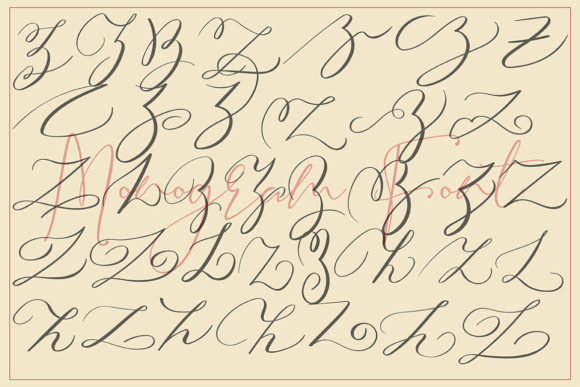 Z Z Z Z Z Z Z
Z Z Z Z Z
Monogram Font
Z Z Z Z Z Z Z Z
Z Z Z Z Z Z Z Z
Z Z Z Z Z Z Z